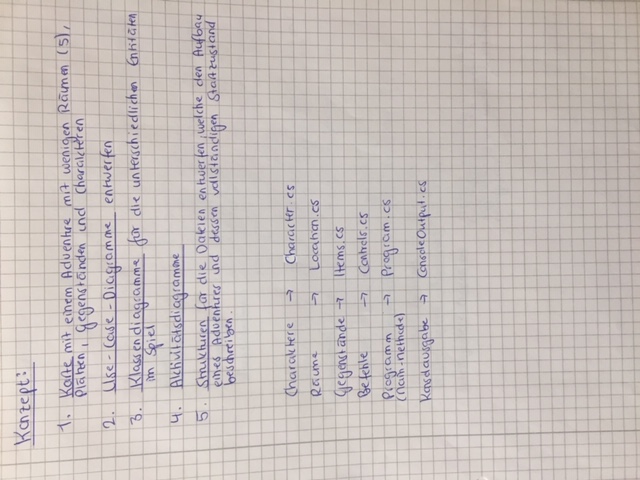 Konzept:
1. Karte mit einem Adventure mit wenigen Räumen (5),
Plätzen, Gegenständen und Charakteren
2. Use-Case-Diagramme entwerfen
3. Klassendiagramme für die unterschiedlichen Entitäten
im Spiel
4. Aktivitätsdiagramme
5. Strukturen für die Dateien entwerfen, welche den Aufbau
eines Adventures und dessen vollständigen Startzustand
beschreiben.
Charaktere → Character.cs
Räume → Location.cs
Gegenstände → Items.cs
Befehle → Controls.cs
Programm → Program.cs
(Main-Methode)
Konsolausgabe → ConsoleOutput.cs